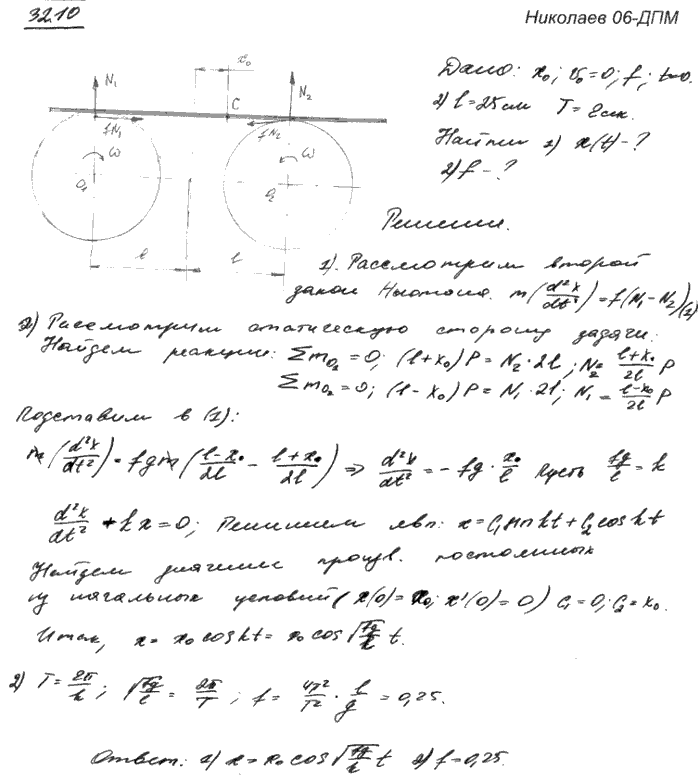 32.10
Николаев 06-ДПМ
N₁
x₀
N₂
C
fN₁
fN₂
ω
ω
O₁
O₂
l
l
Дано: x₀; v₀=0; f; t=0.
2) l=25см T=2сек.
Найти 1) x(t)-?
2) f-?
Решение.
1). Рассмотрим второй
закон Ньютона. m(d²x/dt²)=f(N₁-N₂)(1)
2) Рассмотрим статическую сторону задачи:
Найдем реакции: Σm_O₁=0; (l+x₀)P=N₂·2l; N₂=(l+x₀)/2l P
Σm_O₂=0; (l-x₀)P=N₁·2l; N₁=(l-x₀)/2l P
Подставим в (1):
m(d²x/dt²)=fgm((l-x₀)/2l - (l+x₀)/2l) ⇒ d²x/dt²=-fg·x₀/l Пусть fg/l=k
d²x/dt²+kx=0; Решением явл: x=C₁sinkt+C₂coskt
Найдем значение произв. постоянных
из начальных условий (x(0)=x₀; x'(0)=0) C₁=0; C₂=x₀.
Итак, x=x₀coskt=x₀cos√(fg/k) t.
2) T=2π/k; √(fg/l)=2π/T; f=4π²/T²·l/g=0,25.
Ответ: 1) x=x₀cos√(fg/k) t 2) f=0,25.